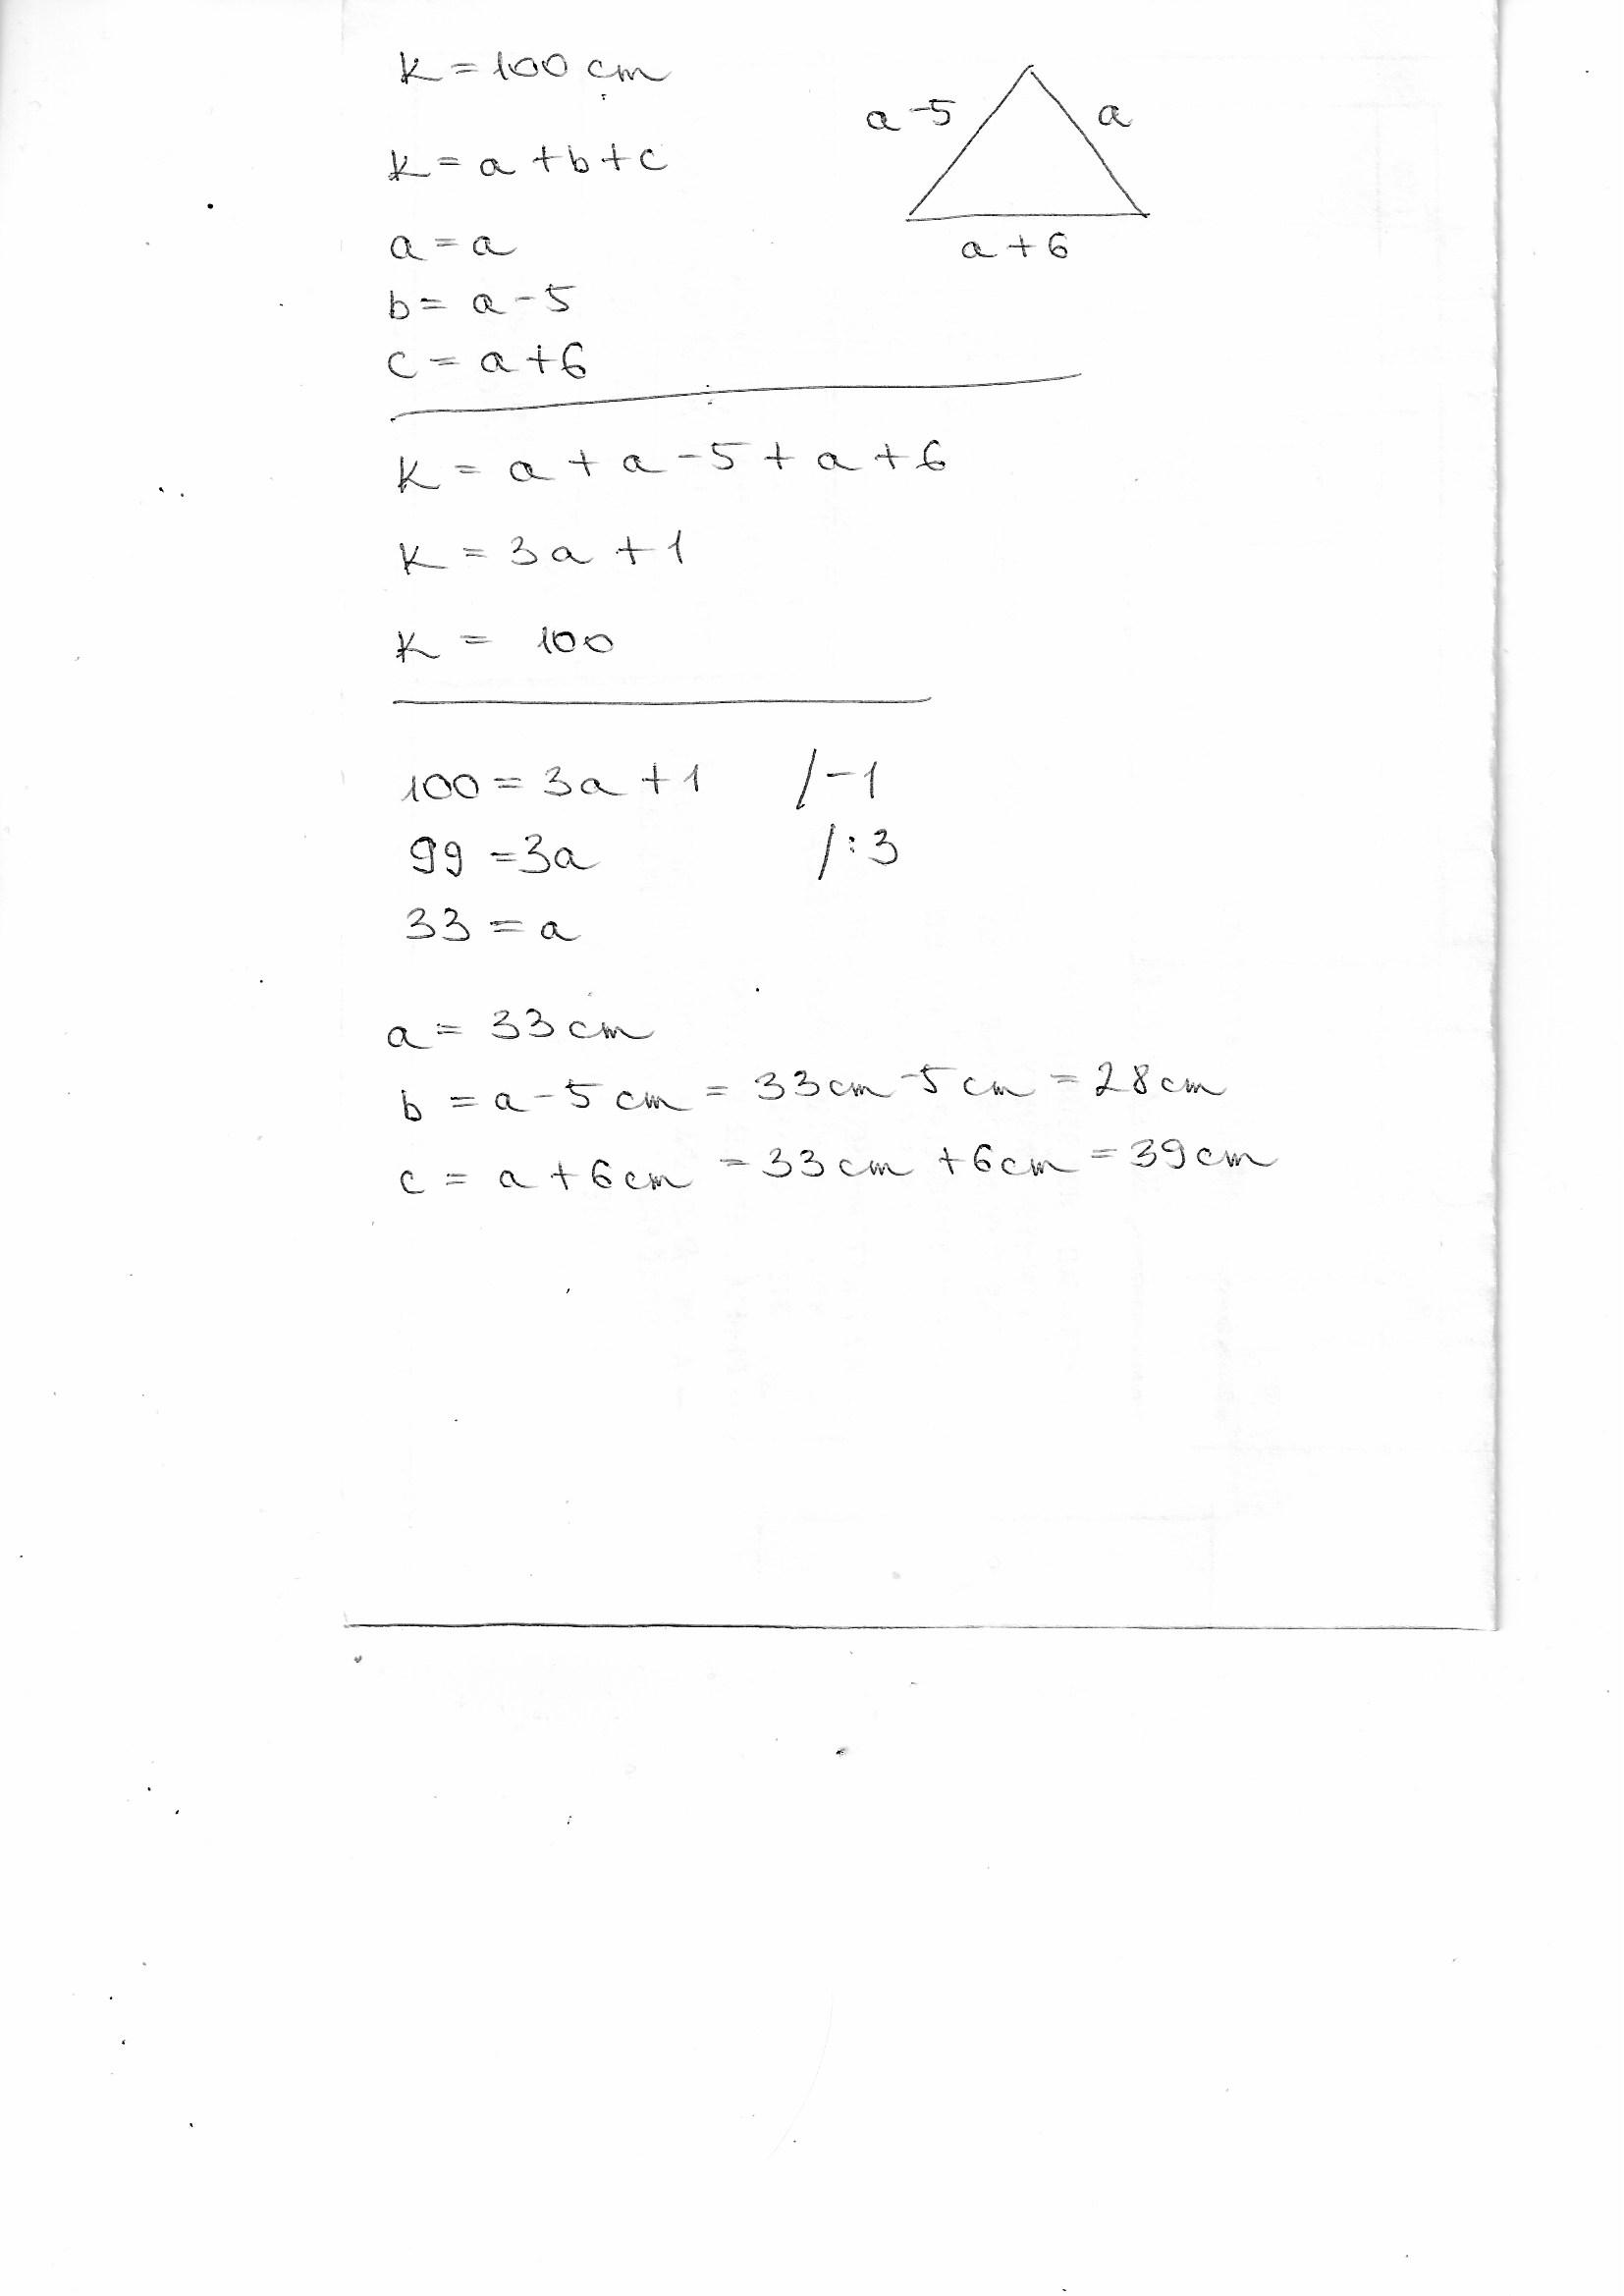 K = 100 cm
K = a + b + c
a = a
b = a - 5
c = a + 6
a - 5
a
a + 6
K = a + a - 5 + a + 6
K = 3a + 1
K = 100
100 = 3a + 1 /-1
99 = 3a /:3
33 = a
a = 33 cm
b = a - 5 cm = 33 cm - 5 cm = 28 cm
c = a + 6 cm = 33 cm + 6 cm = 39 cm